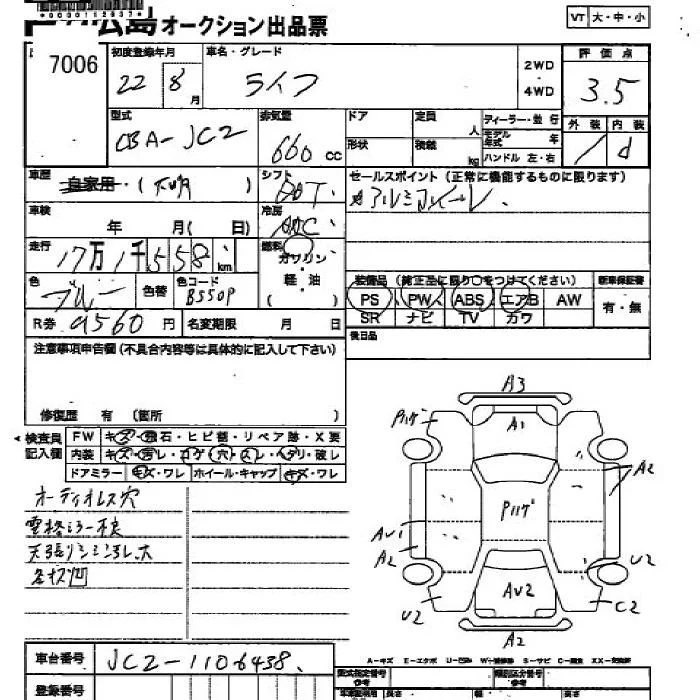 松島オークション出品票
VT 大・中・小
7006
初度登録年月
22 8 月
車名・グレード
ライフ
2WD
・
4WD
評価点
3.5
型式
CBA-JC2
排気量
660 cc
ドア
定員
人
形状
積載
kg
ディーラー・並行
モデル年式 年
ハンドル 左・右
外装 内装
d
車歴
自家用・(不明)
シフト
セールスポイント(正常に機能するものに限ります)
アルミホイール
車検
年 月( 日)
冷房
AAC
走行
17万1千558 km
燃料
ガソリン
・
軽・油
( )
色
ブルー
色替
色コード
B550P
装備品(純正品に限り○をつけてください)
新車保証書
PS PW ABS エアB AW
SR ナビ TV カワ
有・無
R券 9560 円
名変期限 月 日
後日品
注意事項申告欄(不具合内容等は具体的に記入して下さい)
修復歴 有 (箇所 )
検査員記入欄
FW キズ・飛石・ヒビ割・リペア跡・X要
内装 キズ・汚レ・コゲ・穴・スレ・ヘタリ・破レ
ドアミラー キズ・ワレ ホイール・キャップ キズ・ワレ
オーディオレス穴
天張リ
A3
Pハゲ
A1
A2
Pハゲ
AU1
A2
U2
AU2
U2
C2
A2
車台番号 JC2-1106438
登録番号
A-キズ E-エクボ U-凹ミ W-補修跡 S-サビ C-腐食 XX-交換済
型式指定番号
参考
類別区分番号
参考
長さ
幅
高さ